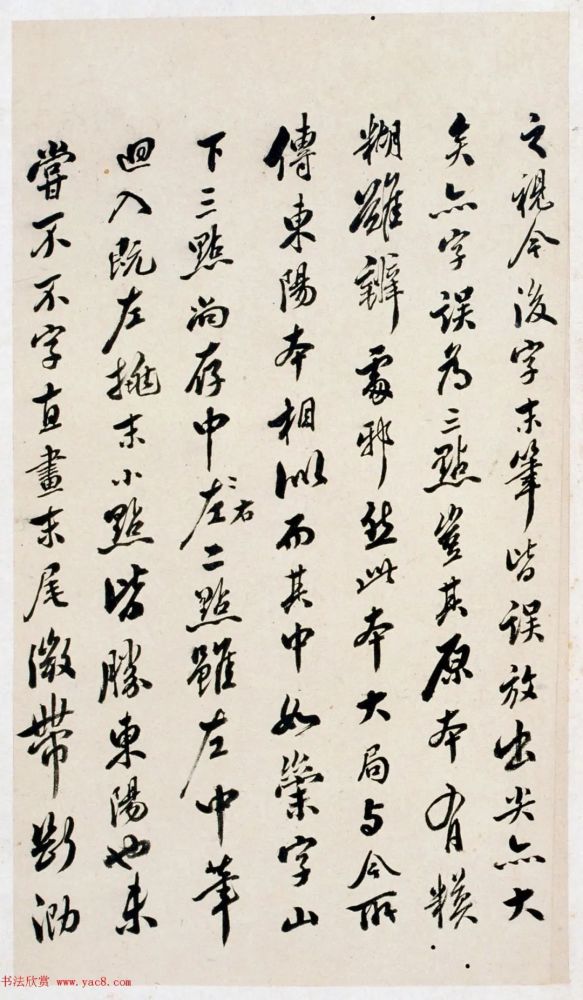 之視今後字末筆皆誤放出尖亦大
矣亦字誤為三點豈其原本有模
糊難辨處邪然此本大局与今所
傳東陽本相似而其中如崇字山
下三點尚存中左二點雖左中筆
右
迴入既左挑末小點皆勝東陽也未
嘗不不字直畫末尾微帶斷泐
书法欣赏 www.yac8.com